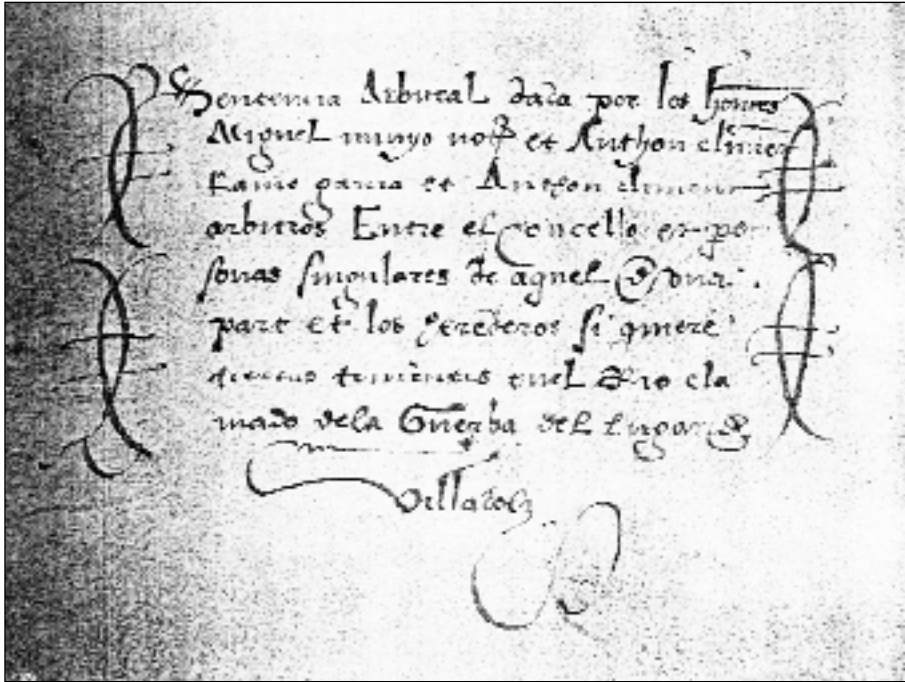 Sentencia Arbitral dada por los honres
Miguel munyo not et Anthon climent
garcia et Anthon climent
arbitros Entre el Concello et per
sonas singulares de aquel de una
part et los herederos si quiere
tenientes enel Rio cla
mado dela Guerba del Lugar de
Villadoz